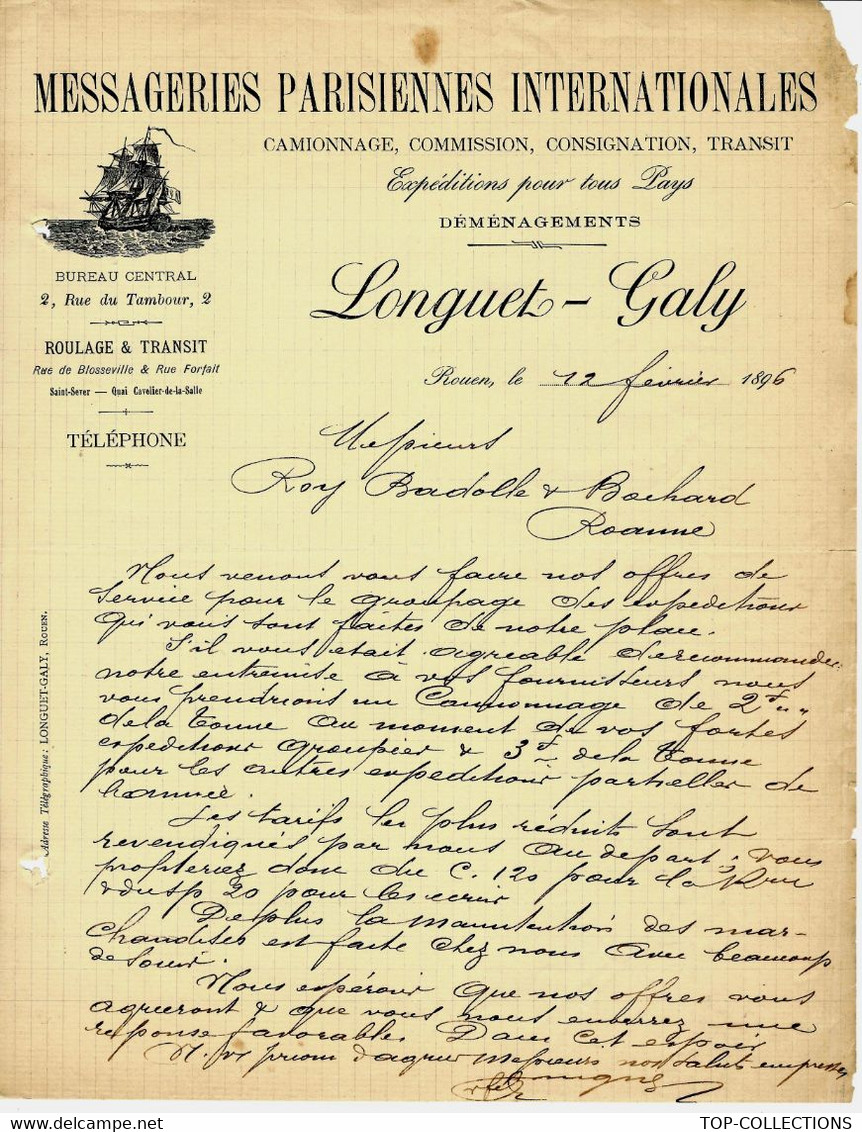 MESSAGERIES PARISIENNES INTERNATIONALES
CAMIONNAGE, COMMISSION, CONSIGNATION, TRANSIT
Expéditions pour tous Pays
DÉMÉNAGEMENTS
Longuet - Galy
BUREAU CENTRAL
2, Rue du Tambour, 2
ROULAGE & TRANSIT
Rue de Blosseville & Rue Forfait
Saint-Sever — Quai Cavelier-de-la-Salle
TÉLÉPHONE
Adresse Télégraphique: LONGUET-GALY, ROUEN.
Rouen, le 12 février 1896
Messieurs
Roy Badolle & Bochard
Roanne
Nous venons vous faire nos offres de
service pour le groupage des expeditions
qui vous sont faites de notre place.
S'il vous etait agreable de recommander
notre entremise à vos fournisseurs nous
vous prendrions un Camionnage de 2f
de la tonne au moment de vos fortes
expeditions & 3f de la tonne
pour les autres expeditions partielles de
l'année.
Les tarifs les plus réduits sont
revendiqués par nous au depart; vous
profiterez donc du C. 120 pour la
& du sp 20 pour les
De plus la manutention des mar-
chandises est faite chez nous avec beaucoup
de soin.
Nous espérons que nos offres vous
agreeront & que vous nous enverrez une
reponse favorable. Dans cet espoir
N. vs prions d'agreer Messieurs nos saluts empressés
TOP-COLLECTIONS